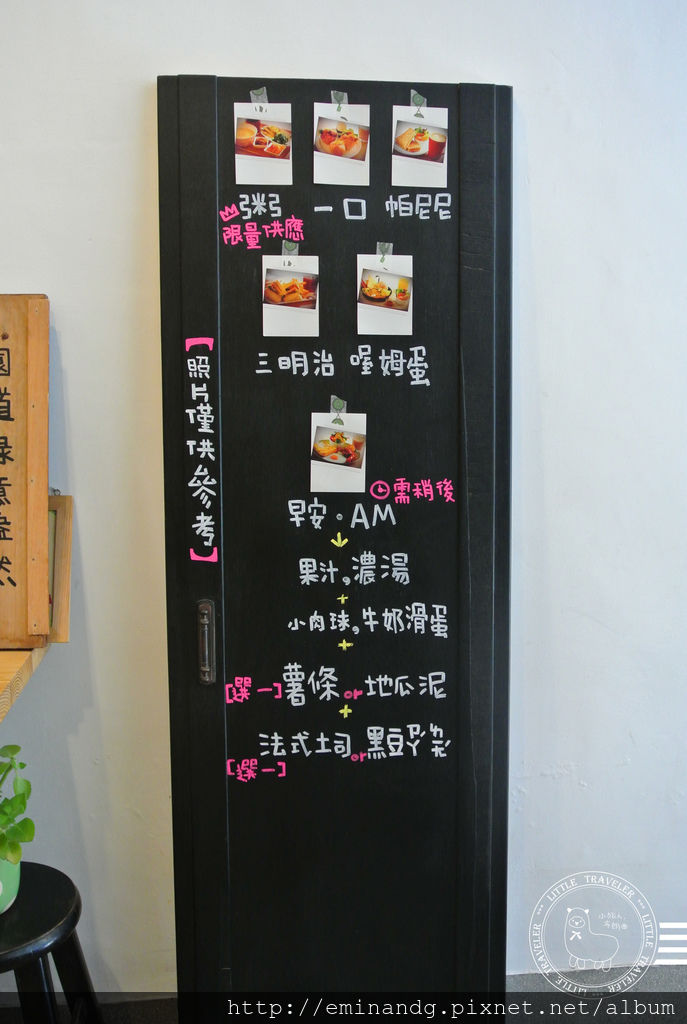 粥 一口 帕尼尼
限量供應
三明治 喔姆蛋
【照片僅供參考】
需稍後
早安·AM
果汁,濃湯
+
小肉球,牛奶滑蛋
+
[選一]薯條or地瓜泥
+
法式土司or黑豆ㄗㄠ
[選一]
園道綠意盎然
LITTLE TRAVELER
LITTLE TRAVELER
LITTLE TRAVELER
http://eminandg.pixnet.net/album